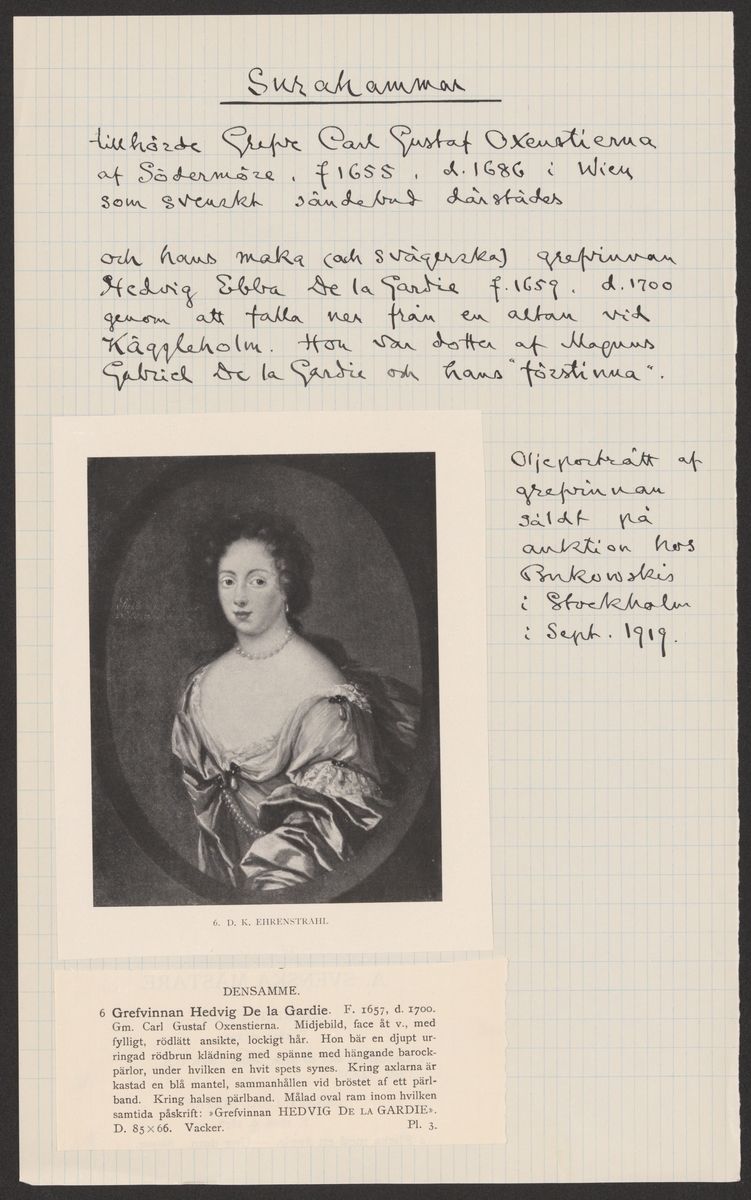 Surahammar
tillhörde Grefve Carl Gustaf Oxenstierna
af Södermöre, f 1655, d. 1686 i Wien
som svenskt sändebud därstädes
och hans maka (och svägerska) grefvinnan
Hedvig Ebba De la Gardie f. 1659, d. 1700
genom att falla ner från en altan vid
Käggleholm. Hon var dotter af Magnus
Gabriel De la Gardie och hans "förstinna".
Oljeporträtt af
grefvinnan
såldt på
auktion hos
Bukowskis
i Stockholm
i Sept. 1919.
6. D. K. EHRENSTRAHL
DENSAMME.
6 Grefvinnan Hedvig De la Gardie. F. 1657, d. 1700.
Gm. Carl Gustaf Oxenstierna. Midjebild, face åt v., med
fylligt, rödlätt ansikte, lockigt hår. Hon bär en djupt ur-
ringad rödbrun klädning med spänne med hängande barock-
pärlor, under hvilken en hvit spets synes. Kring axlarna är
kastad en blå mantel, sammanhållen vid bröstet af ett pärl-
band. Kring halsen pärlband. Målad oval ram inom hvilken
samtida påskrift: »Grefvinnan HEDVIG DE LA GARDIE».
D. 85×66. Vacker. Pl. 3.